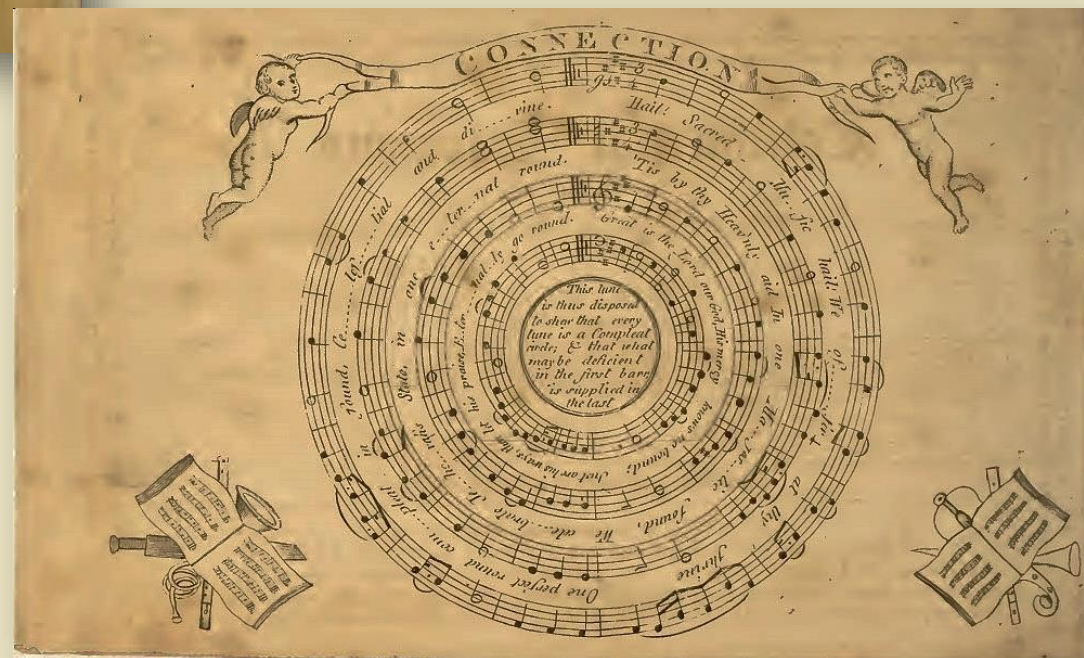 CONNECTION
Hail! Sacred Mu...sic hail! We of.......fer at thy shrine
One perfect round com.....pleat in round, Ce......les.......tial and di......vine.
'Tis by thy Heav'nly aid In one Ma...jes...tic found,
We cele...brate Je...ho...vah's State, in one e...ter...nal round.
Great is the Lord our God, His mercy knows no bound;
Just are his ways, then let his praise, E...ter...nal...ly go round.
This tune
is thus disposed
to shew that every
tune is a Compleat
circle; & that what
may be deficient
in the first barr
is supplied in
the last